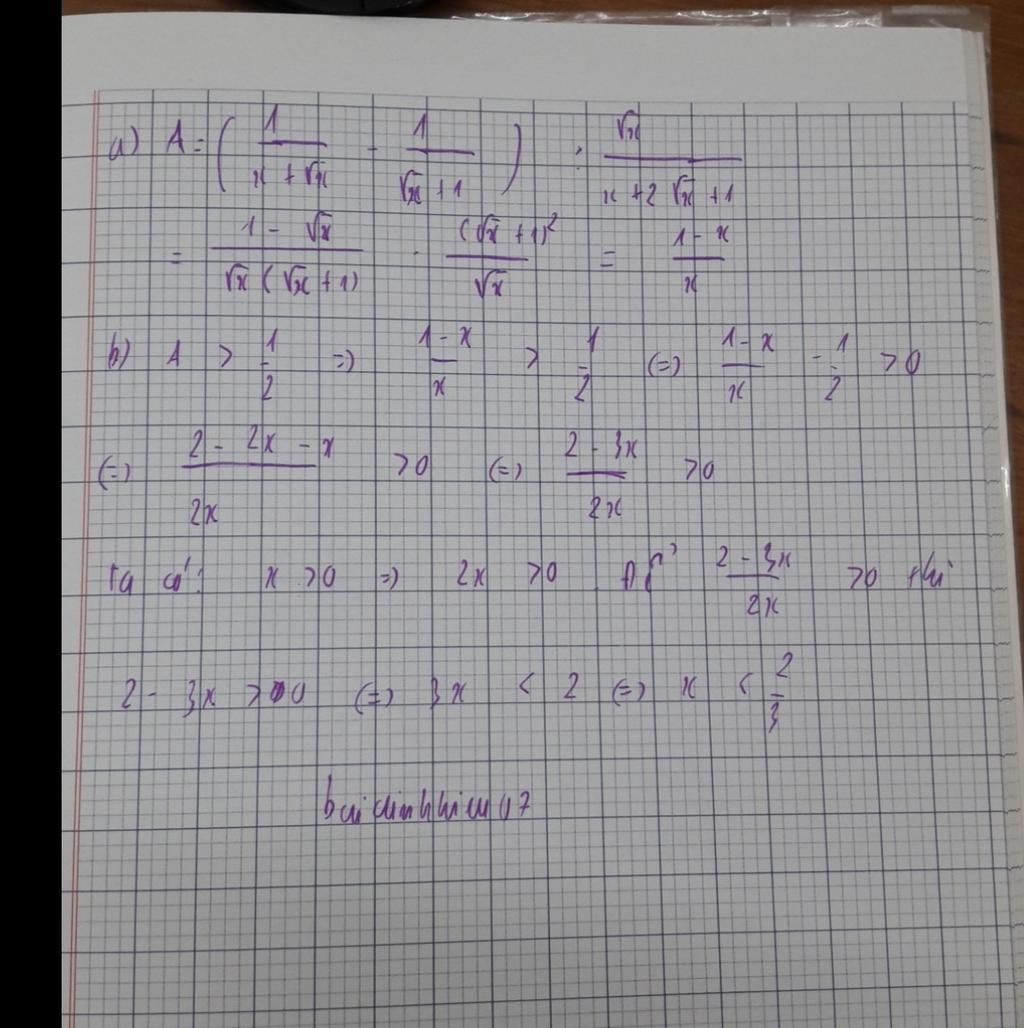 a) A = ( 1/(x + √x) - 1/(√x + 1) ) : √x/(x + 2√x + 1)
= (1 - √x)/(√x (√x + 1)) . (√x + 1)²/√x = (1 - x)/x
b) A > 1/2 => (1 - x)/x > 1/2 (=) (1 - x)/x - 1/2 > 0
(=) (2 - 2x - x)/2x > 0 (=) (2 - 3x)/2x > 0
ta có: x > 0 => 2x > 0. để (2 - 3x)/2x > 0 thì
2 - 3x > 0 (=) 3x < 2 (=) x < 2/3
buidinhhieu07